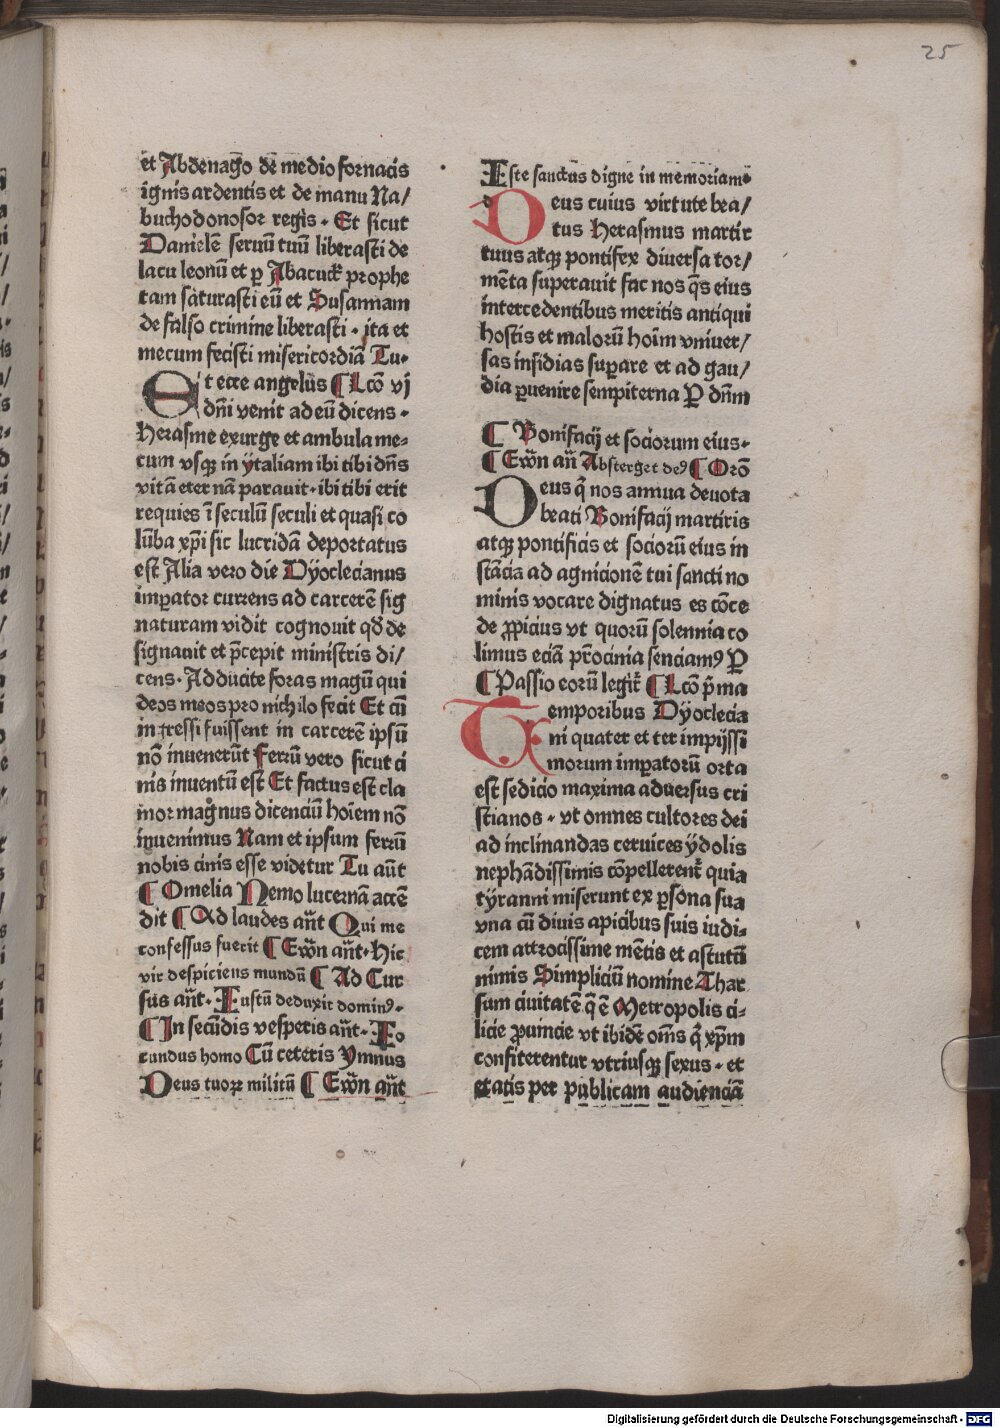 25
et Abdenago dē medio fornacis
ignis ardentis et de manu Na/
buchodonosor regis · Et sicut
Danielē seruū tuū liberasti de
lacu leonū et ꝑ Abacuck prophe
tam saturasti eū et Susannam
de falso crimine liberasti · ita et
mecum fecisti misericordiā Tu·
Et ecce angelus ¶ Lcō vj
dn̄i venit ad eū dicens ·
Herasme exurge et ambula me-
cum vsqꝫ in ytaliam ibi tibi dn̄s
vitā eternā parauit · ibi tibi erit
requies ī seculū seculi et quasi co
lūba xp̄i sic lucridā deportatus
est Alia vero die Dyoclecianus
imꝑator currens ad carcerē sig
naturam vidit cognouit qd̄ de
signauit et p̄cepit ministris di/
cens · Adducite foras magū qui
deos meos pro nichilo fecit Et cū
ingressi fuissent in carcerē ipsū
nō inuenerūt Ferrū vero sicut ci
nis inuentū est Et factus est cla
mor magnus dicenciū hoīem nō
inuenimus Nam et ipsum ferrū
nobis cinis esse videtur Tu aūt
¶ Omelia Nemo lucernā accē
dit ¶ Ad laudes an̄t Qui me
confessus fuerit ¶ Ewn̄ an̄t · Hic
vir despiciens mundū ¶ Ad Cur
sus an̄t · Iustū deduxit domin⁹ ·
¶ In secūdis vesperis an̄t · Io
cundus homo Cū ceteris Ymnus
Deus tuoꝝ militū ¶ Ewn̄ an̄t
Iste sanctus digne in memoriam·
Deus cuius virtute bea/
tus Herasmus martir
tuus atqꝫ pontifex diuersa tor/
mēta superauit fac nos q̄s eius
intercedentibus meritis antiqui
hostis et malorū hoīm vniuer/
sas insidias suꝑare et ad gau/
dia ꝑuenire sempiterna Ꝑ dn̄m
¶ Bonifacij et sociorum eius ·
¶ Ewn̄ an̄ Absterget de⁹ ¶ Orō
Deus q̄ nos annua deuota
beati Bonifacij martiris
atqꝫ pontificis et sociorū eius in
stācia ad agnicionē tui sancti no
minis vocare dignatus es cōce
de ꝓpicius vt quorū solennia co
limus eciā pr̄ocinia senciam⁹ Ꝑ
¶ Passio eorū legit̄ ¶ Lcō p̄ma
Temporibus Dyoclecia
ni quater et ter impijssi
morum imꝑatorū orta
est sedicio maxima aduersus cri
stianos · vt omnes cultores dei
ad inclinandas ceruices ydolis
nephandissimis cōpellerent̄ quia
tyranni miserunt ex ꝑsona sua
vna cū diuis apicibus suis iudi-
cem attrocissime mētis et astutū
nimis Simpliciū nomine Thar
sum ciuitatē q̄ ē Metropolis ci-
licie ꝓuincie vt ibidē om̄s q̄ xp̄m
confiterentur vtriusqꝫ sexus · et
etatis per publicam audienciā
Digitalisierung gefördert durch die Deutsche Forschungsgemeinschaft - DFG